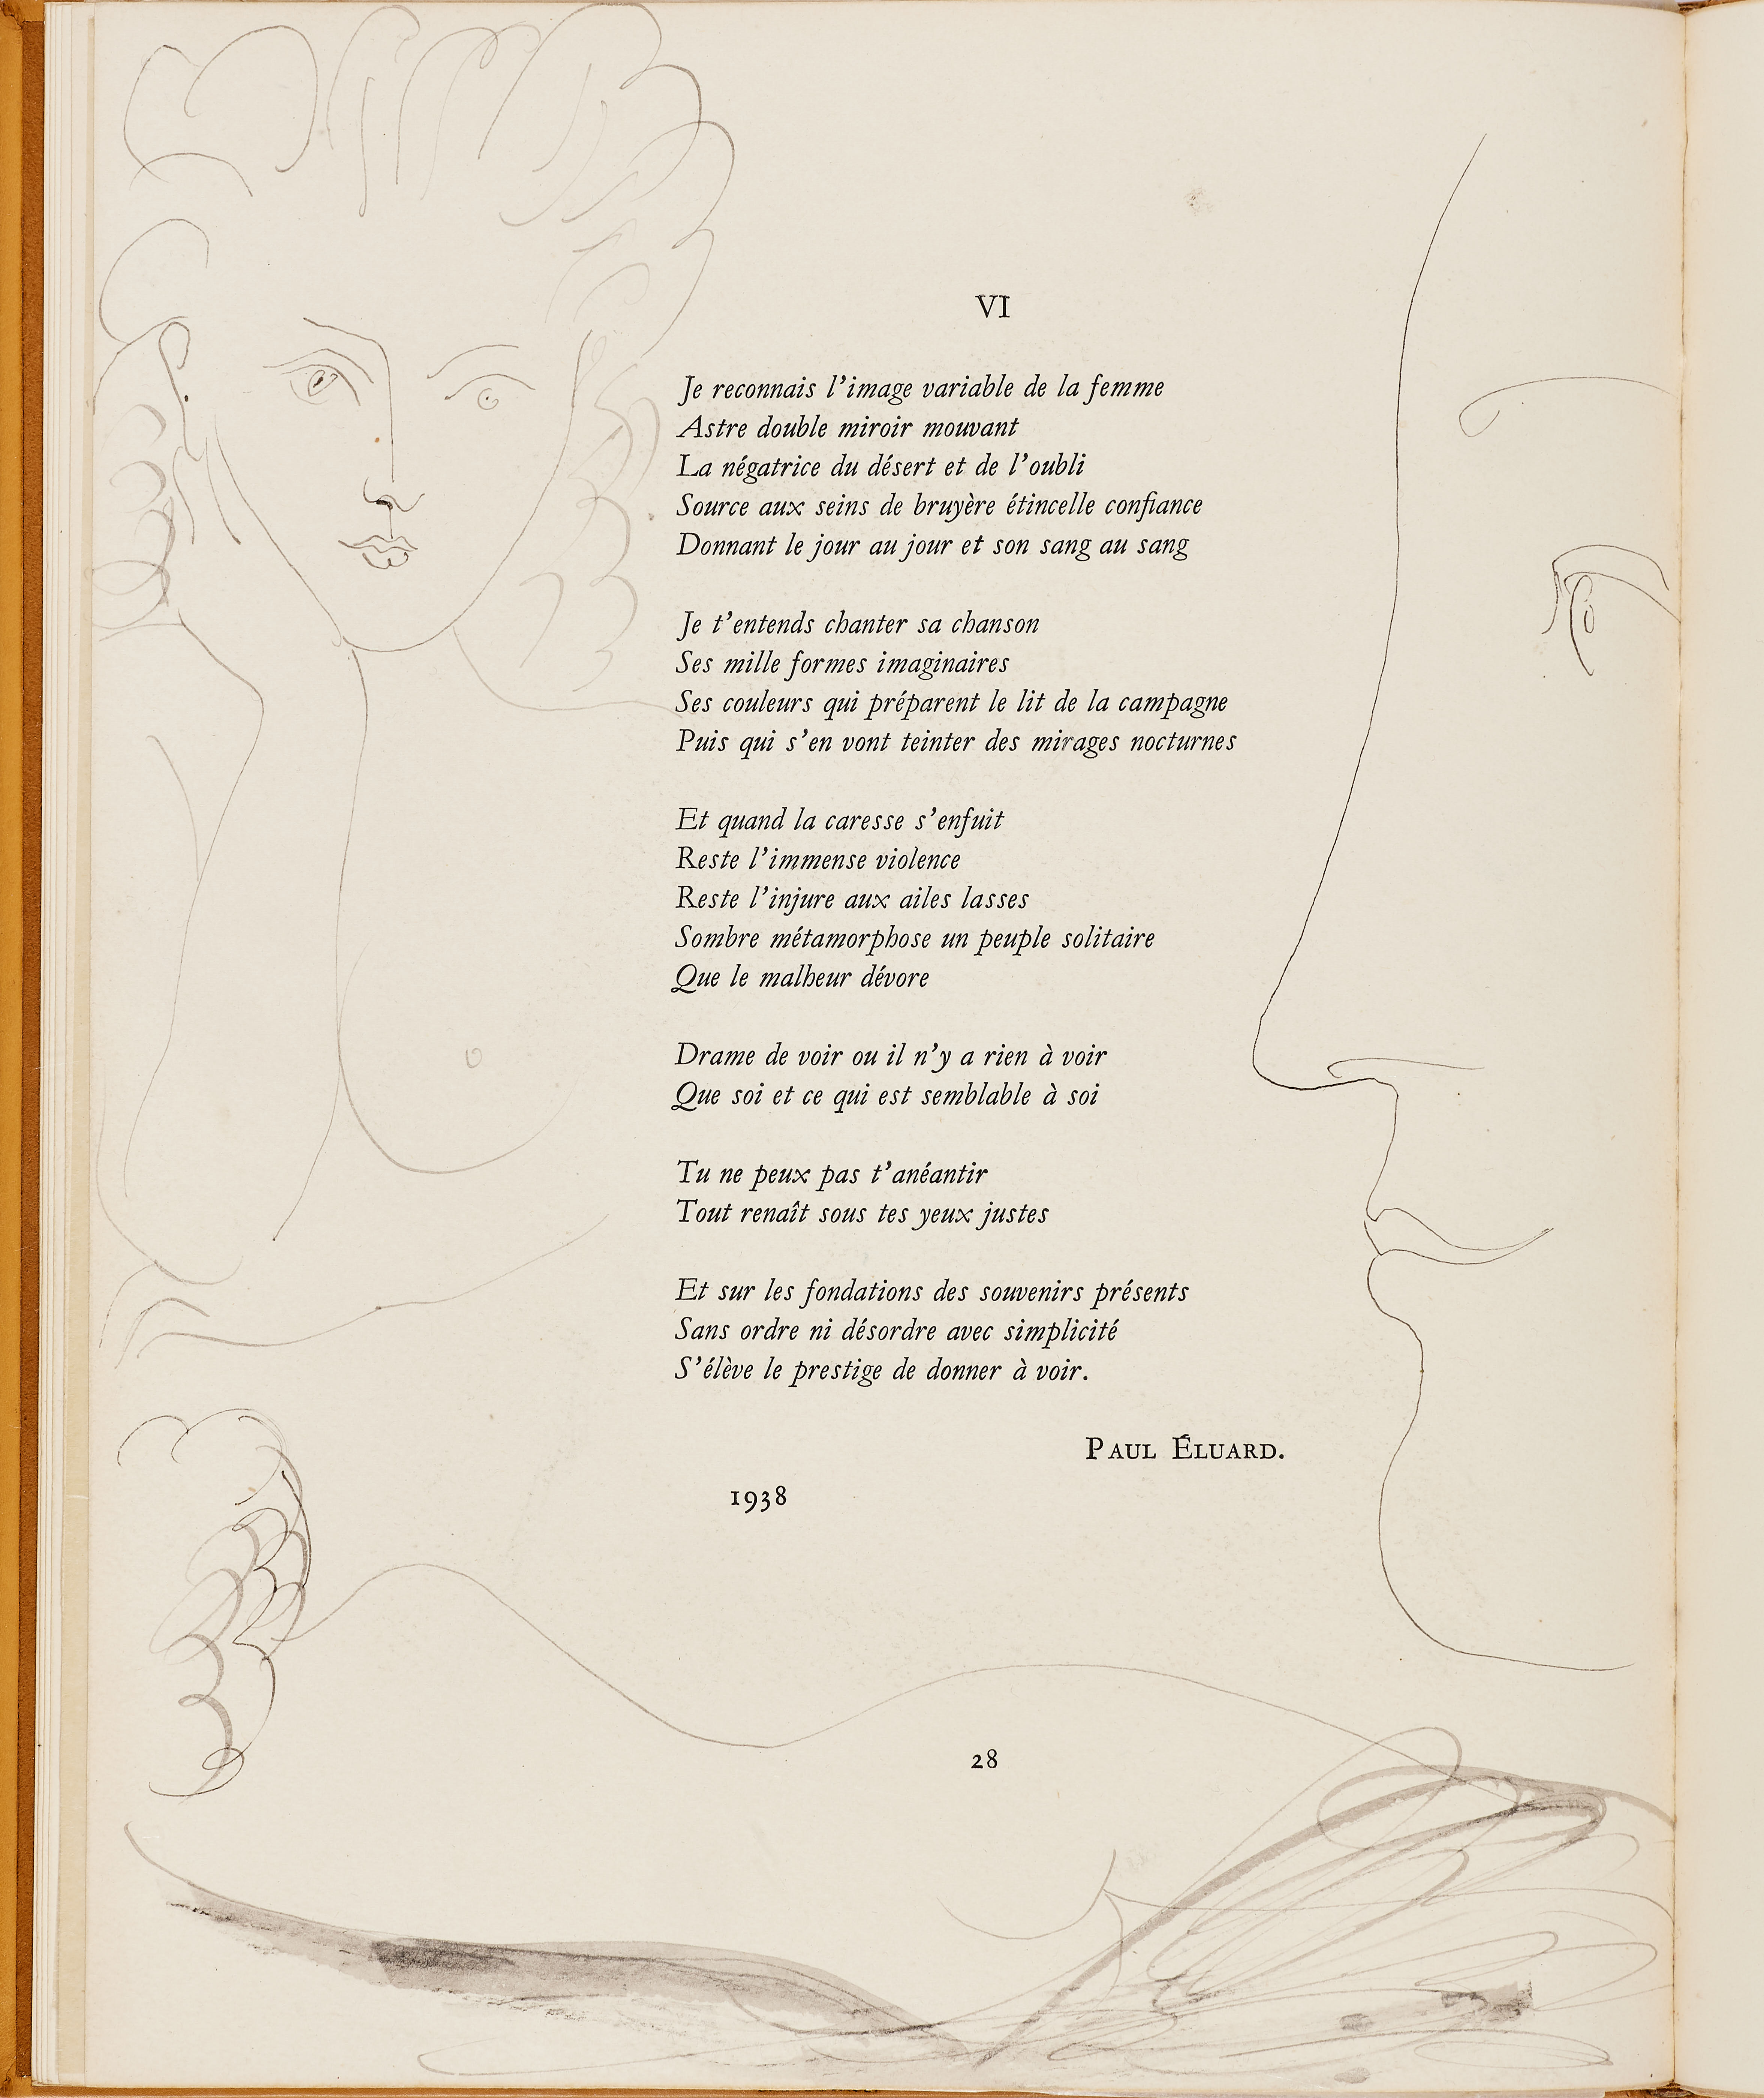 VI
Je reconnais l'image variable de la femme
Astre double miroir mouvant
La négatrice du désert et de l'oubli
Source aux seins de bruyère étincelle confiance
Donnant le jour au jour et son sang au sang
Je t'entends chanter sa chanson
Ses mille formes imaginaires
Ses couleurs qui préparent le lit de la campagne
Puis qui s'en vont teinter des mirages nocturnes
Et quand la caresse s'enfuit
Reste l'immense violence
Reste l'injure aux ailes lasses
Sombre métamorphose un peuple solitaire
Que le malheur dévore
Drame de voir ou il n'y a rien à voir
Que soi et ce qui est semblable à soi
Tu ne peux pas t'anéantir
Tout renaît sous tes yeux justes
Et sur les fondations des souvenirs présents
Sans ordre ni désordre avec simplicité
S'élève le prestige de donner à voir.
PAUL ÉLUARD.
1938
28